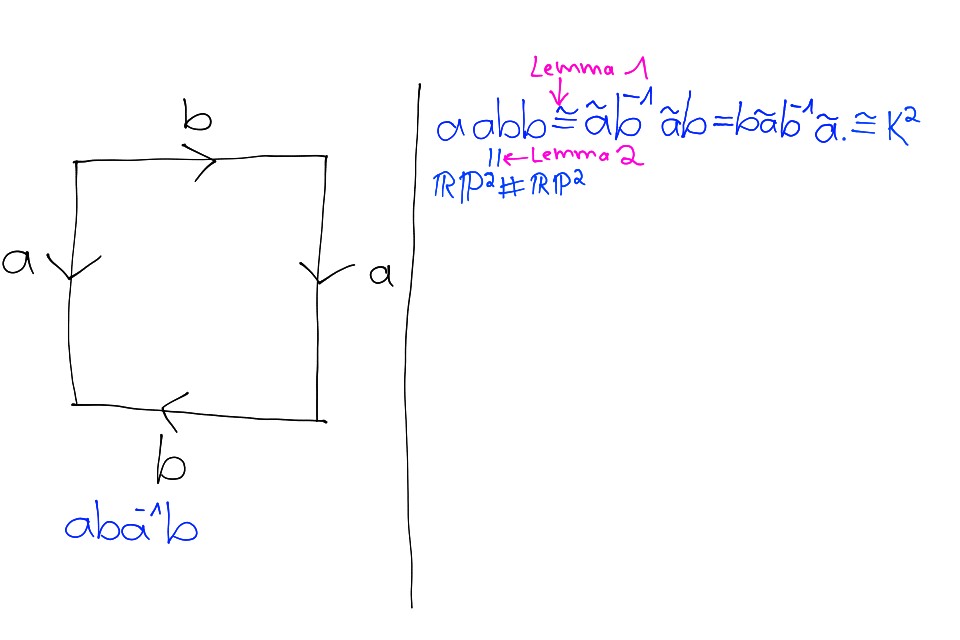 b
a
a
b
aba⁻¹b
Lemma 1
aabb ≅ ãb⁻¹ãb = bãb⁻¹ã. ≅ K²
|| ← Lemma 2
ℝℙ² # ℝℙ²